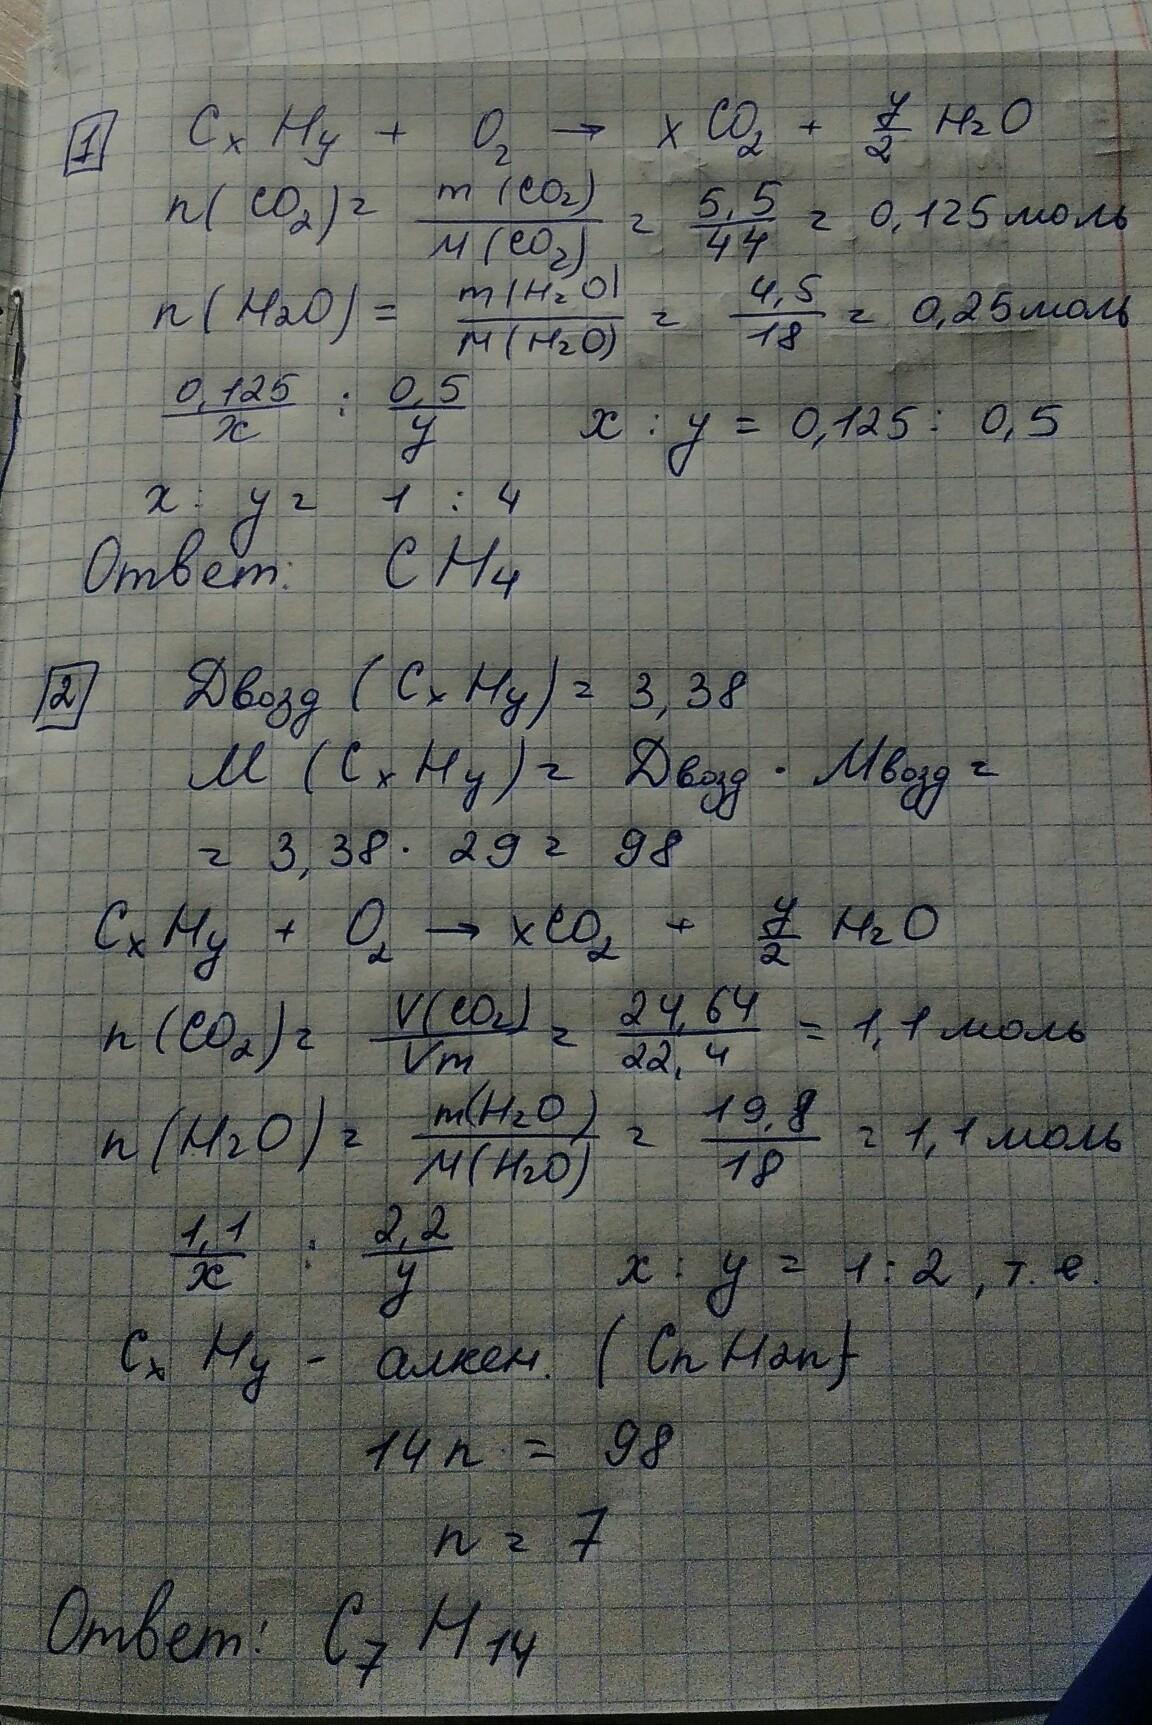 1 CxHy + O2 → xCO2 + y/2 H2O
n(CO2) = m(CO2)/M(CO2) = 5,5/44 = 0,125 моль
n(H2O) = m(H2O)/M(H2O) = 4,5/18 = 0,25 моль
0,125/x : 0,5/y x : y = 0,125 : 0,5
x : y = 1 : 4
Ответ: CH4
2 Двозд (CxHy) = 3,38
M (CxHy) = Двозд · Mвозд =
= 3,38 · 29 = 98
CxHy + O2 → xCO2 + y/2 H2O
n(CO2) = V(CO2)/Vm = 24,64/22,4 = 1,1 моль
n(H2O) = m(H2O)/M(H2O) = 19,8/18 = 1,1 моль
1,1/x : 2,2/y x : y = 1 : 2, т.е.
CxHy - алкен. (CnH2n)
14n = 98
n = 7
Ответ: C7H14